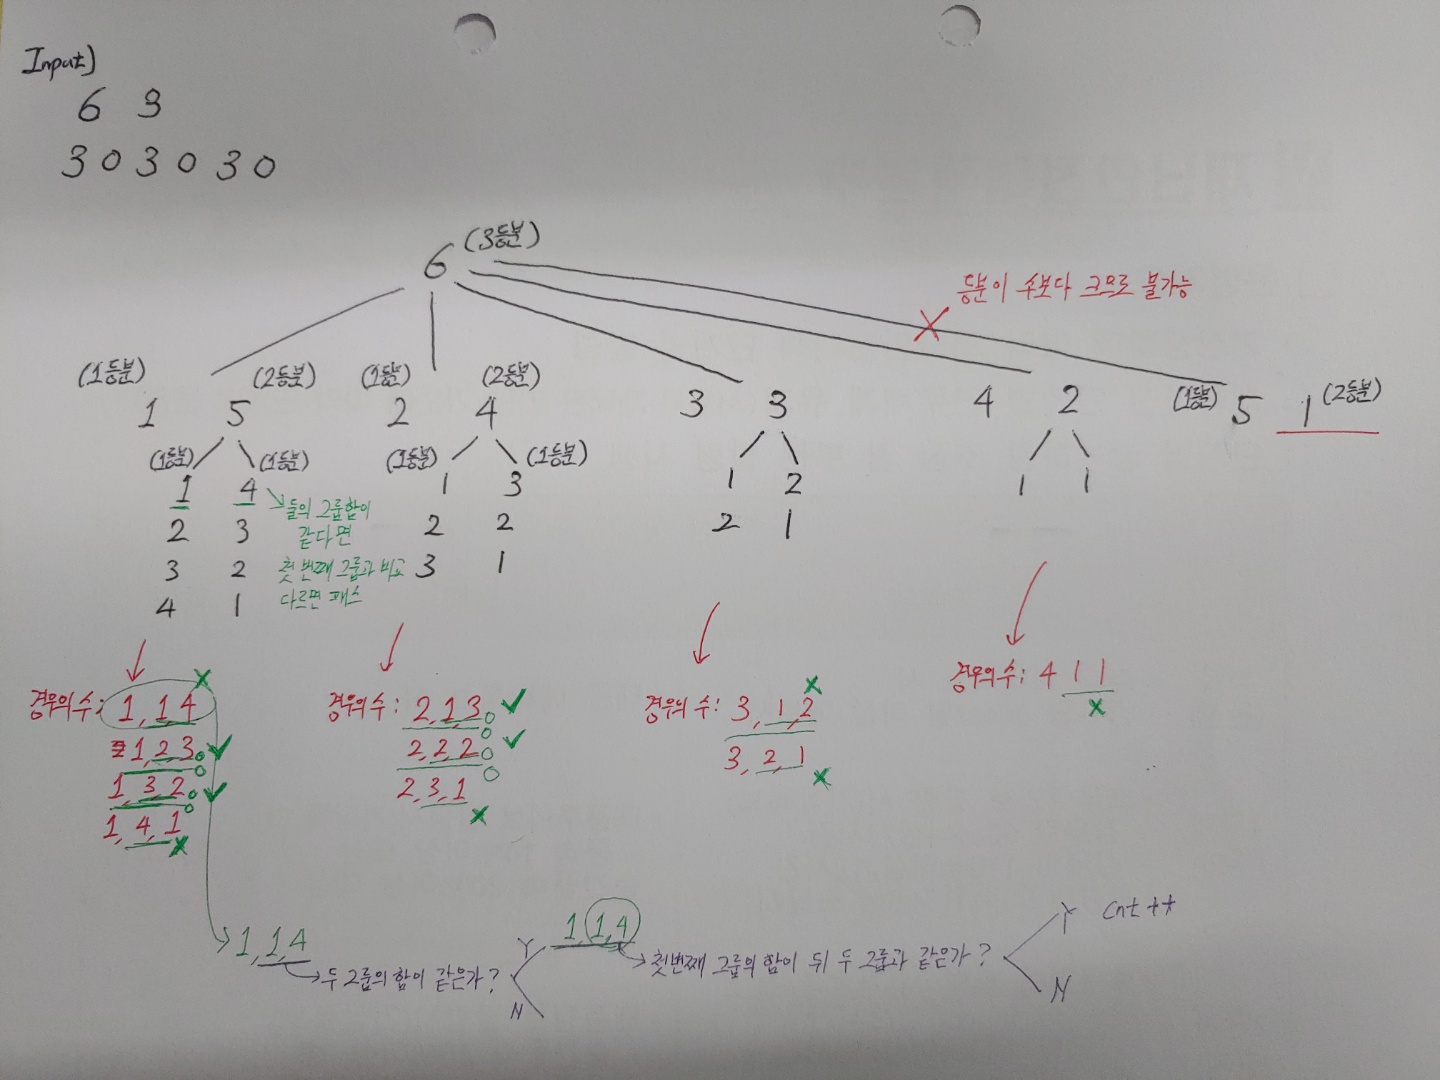 Input)
6 3
3 0 3 0 3 0
6 (3등분)
등분이 수보다 크므로 불가능
(1등분) (2등분) (1등분) (2등분)
1 5 2 4 3 3 4 2 (1등분) 5 1 (2등분)
(1등분) (1등분) (1등분) (1등분)
1 4 1 3 1 2 1 1
둘의 그룹합이
2 3 2 2 2 1
같다면
3 2 3 1
첫번째 그룹과 비교
4 1
다르면 패스
경우의 수: 1, 1, 4
1, 2, 3
1, 3, 2
1, 4, 1
경우의 수: 2, 1, 3
2, 2, 2
2, 3, 1
경우의 수: 3, 1, 2
3, 2, 1
경우의 수: 4 1 1
1, 1, 4
두 그룹의 합이 같은가?
Y
N
1, 1, 4
첫번째 그룹의 합이 뒤 두 그룹과 같은가?
Y cnt++
N